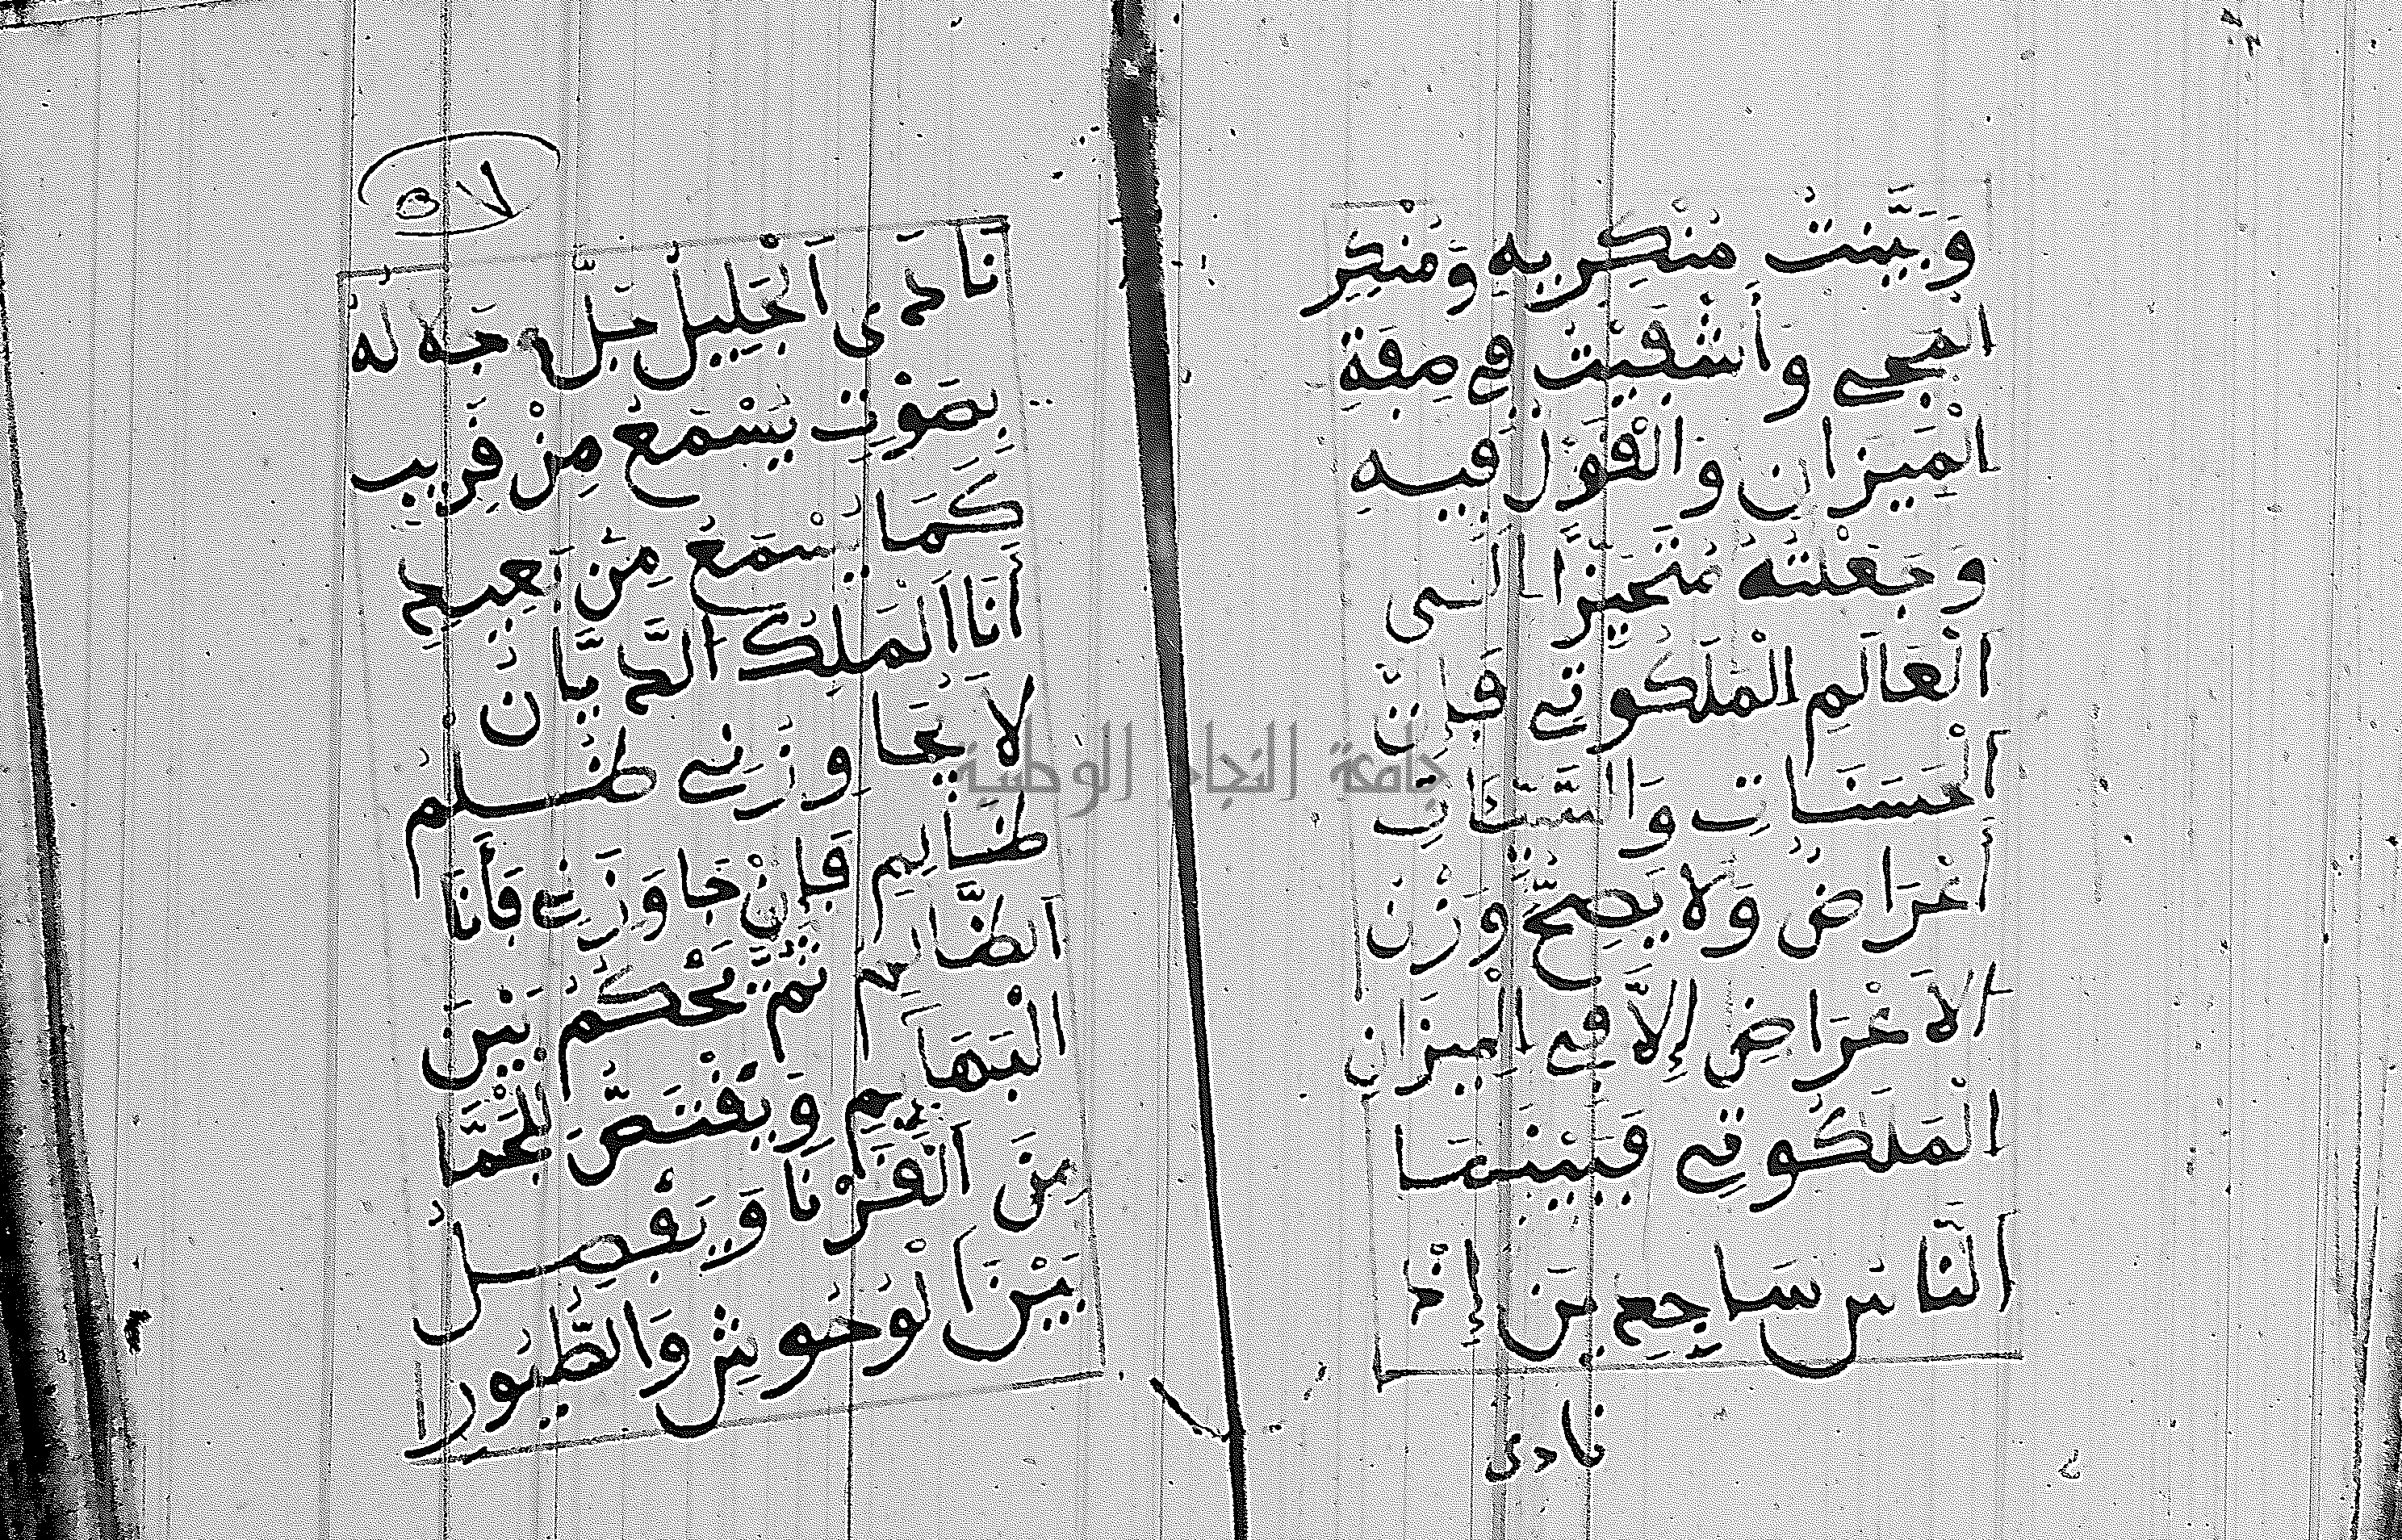 وَبَيَّنتُ مُنْكِرِيهِ وَمُنْكِرِ
المجي وَأَشْفَيْتُ في صِفَةِ
الْمِيزَانِ وَالْقَوْلُ فِيهِ
وجَعَلْتُهُ مُتَحَيِّزًا الى
الْعَالَمِ الْمَلَكُوتِي فَإِنَّ
الْحَسَنَاتِ وَالسَّيِّئَاتِ
أَعْرَاضٌ وَلا يَصِحُّ وَزْنُ
الاَعْرَاضِ إِلاَّ فِي الْمِيزَانِ
الْمَلَكُوتِي فَبَيْنَمَا
النَّاسُ سَاجِعِينَ إِذْ
نادى
٥٧
نَادَى اَلْجَلِيلُ جَلَّ جَلاَلُهُ
بِصَوْتٍ يُسْمَعُ مِنْ قَرِيبٍ
كَمَا يُسْمَعُ مِنْ بَعِيدٍ
أَنَا اَلْمَلِكُ الدَّيَّانُ
لاَ يُجَاوِزُنِي ظُلْمُ
ظَالِمٍ فَإِنْ جَاوَزَنِي فَأَنَا
اَلظَّالِمُ ثُمَّ يَحْكُمُ بَيْنَ
الْبَهَايِمِ وَيَقْتَصُّ لِلْجَمَّا
مِنَ اَلْقَرْنَا وَيَفْصِلُ
بَيْنَ اَلْوُحُوشِ وَالطُّيُورِ
جامعة النجاح الوطنية